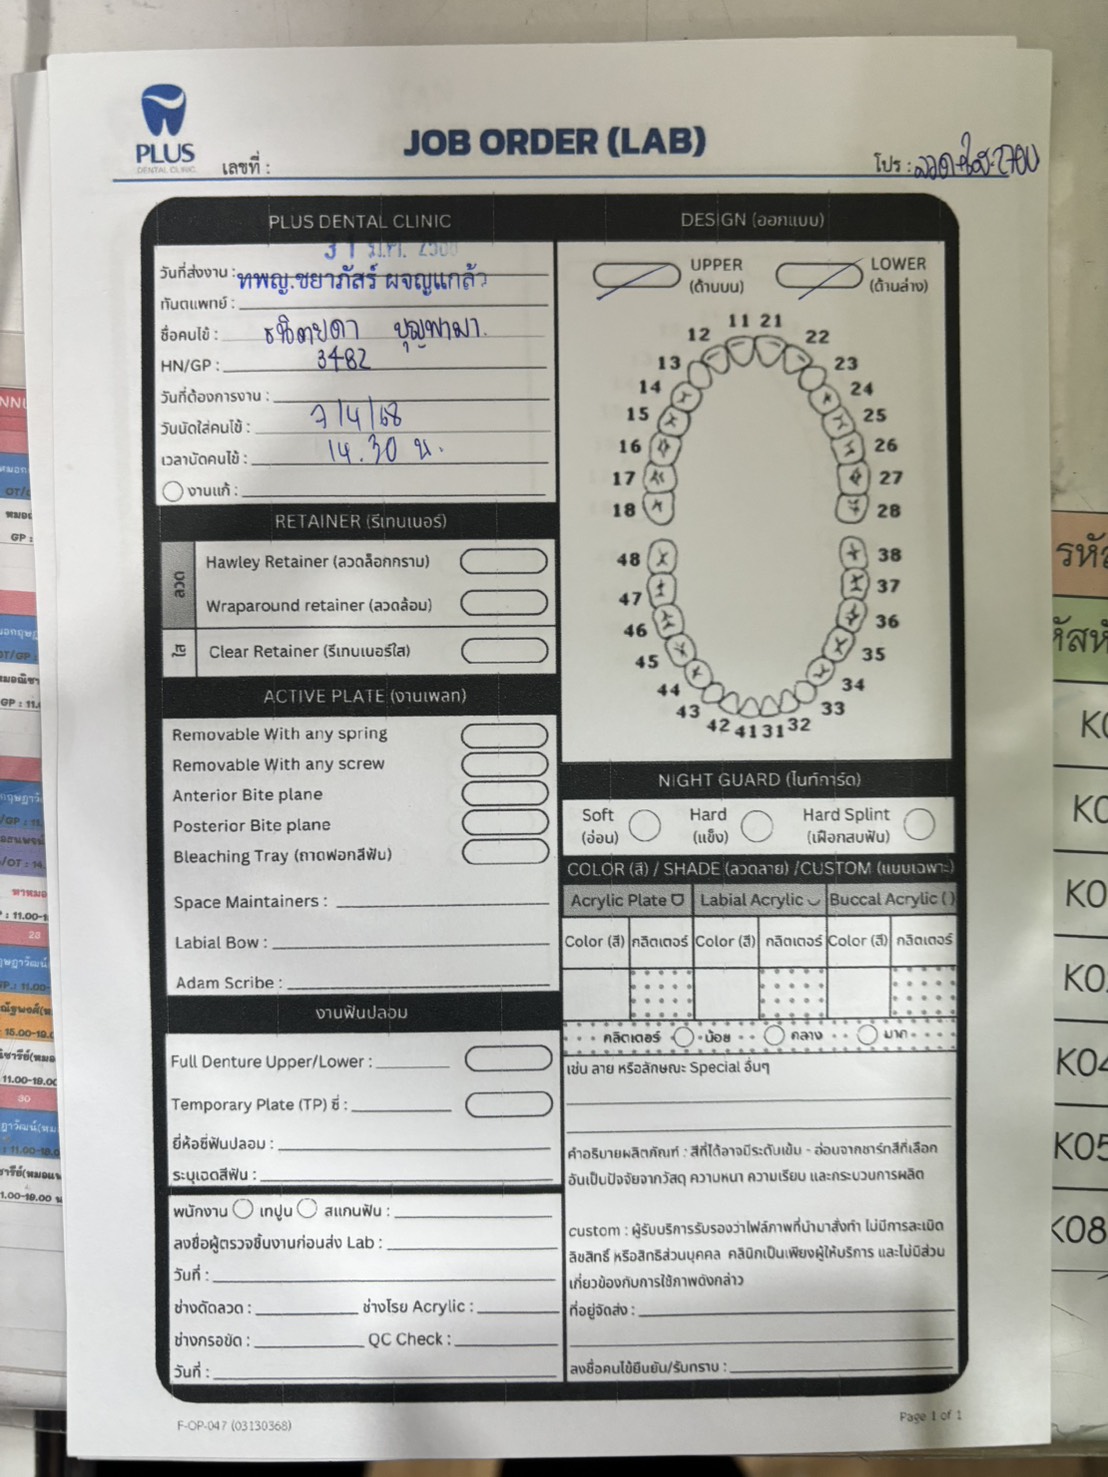 PLUS
DENTAL CLINIC
JOB ORDER (LAB)
เลขที่ :
โปร :
PLUS DENTAL CLINIC
31 มี.ค. 2568
วันที่ส่งงาน :
ทพญ.ชยาภัสร์ ผจญแกล้ว
ทันตแพทย์ :
ชื่อคนไข้ :
HN/GP : 3482
วันที่ต้องการงาน :
วันนัดใส่คนไข้ : 7/4/68
เวลานัดคนไข้ : 14.30 น.
งานแก้ :
RETAINER (รีเทนเนอร์)
ลวด
Hawley Retainer (ลวดล็อกกราม)
Wraparound retainer (ลวดล้อม)
ใส
Clear Retainer (รีเทนเนอร์ใส)
ACTIVE PLATE (งานเพลท)
Removable With any spring
Removable With any screw
Anterior Bite plane
Posterior Bite plane
Bleaching Tray (ถาดฟอกสีฟัน)
Space Maintainers :
Labial Bow :
Adam Scribe :
งานฟันปลอม
Full Denture Upper/Lower :
Temporary Plate (TP) ซี่ :
ยี่ห้อซี่ฟันปลอม :
ระบุเฉดสีฟัน :
พนักงาน เทปูน สแกนฟัน :
ลงชื่อผู้ตรวจชิ้นงานก่อนส่ง Lab :
วันที่ :
ช่างดัดลวด : ช่างโรย Acrylic :
ช่างกรอขัด : QC Check :
วันที่ :
DESIGN (ออกแบบ)
UPPER LOWER
(ด้านบน) (ด้านล่าง)
11 21
12 22
13 23
14 24
15 25
16 26
17 27
18 28
48 38
47 37
46 36
45 35
44 34
43 33
42 41 31 32
NIGHT GUARD (ไนท์การ์ด)
Soft Hard Hard Splint
(อ่อน) (แข็ง) (เฝือกสบฟัน)
COLOR (สี) / SHADE (ลวดลาย) /CUSTOM (แบบเฉพาะ)
Acrylic Plate Labial Acrylic Buccal Acrylic ( )
Color (สี) กลิตเตอร์ Color (สี) กลิตเตอร์ Color (สี) กลิตเตอร์
กลิตเตอร์ น้อย กลาง มาก
เช่น ลาย หรือลักษณะ Special อื่นๆ
คำอธิบายผลิตภัณฑ์ : สีที่ได้อาจมีระดับเข้ม - อ่อนจากชาร์ทสีที่เลือก
อันเป็นปัจจัยจากวัสดุ ความหนา ความเรียบ และกระบวนการผลิต
custom : ผู้รับบริการรับรองว่าไฟล์ภาพที่นำมาสั่งทำ ไม่มีการละเมิด
ลิขสิทธิ์ หรือสิทธิส่วนบุคคล คลินิกเป็นเพียงผู้ให้บริการ และไม่มีส่วน
เกี่ยวข้องกับการใช้ภาพดังกล่าว
ที่อยู่จัดส่ง :
ลงชื่อคนไข้ยืนยัน/รับทราบ :
F-OP-047 (03130368)
Page 1 of 1
K05
K08